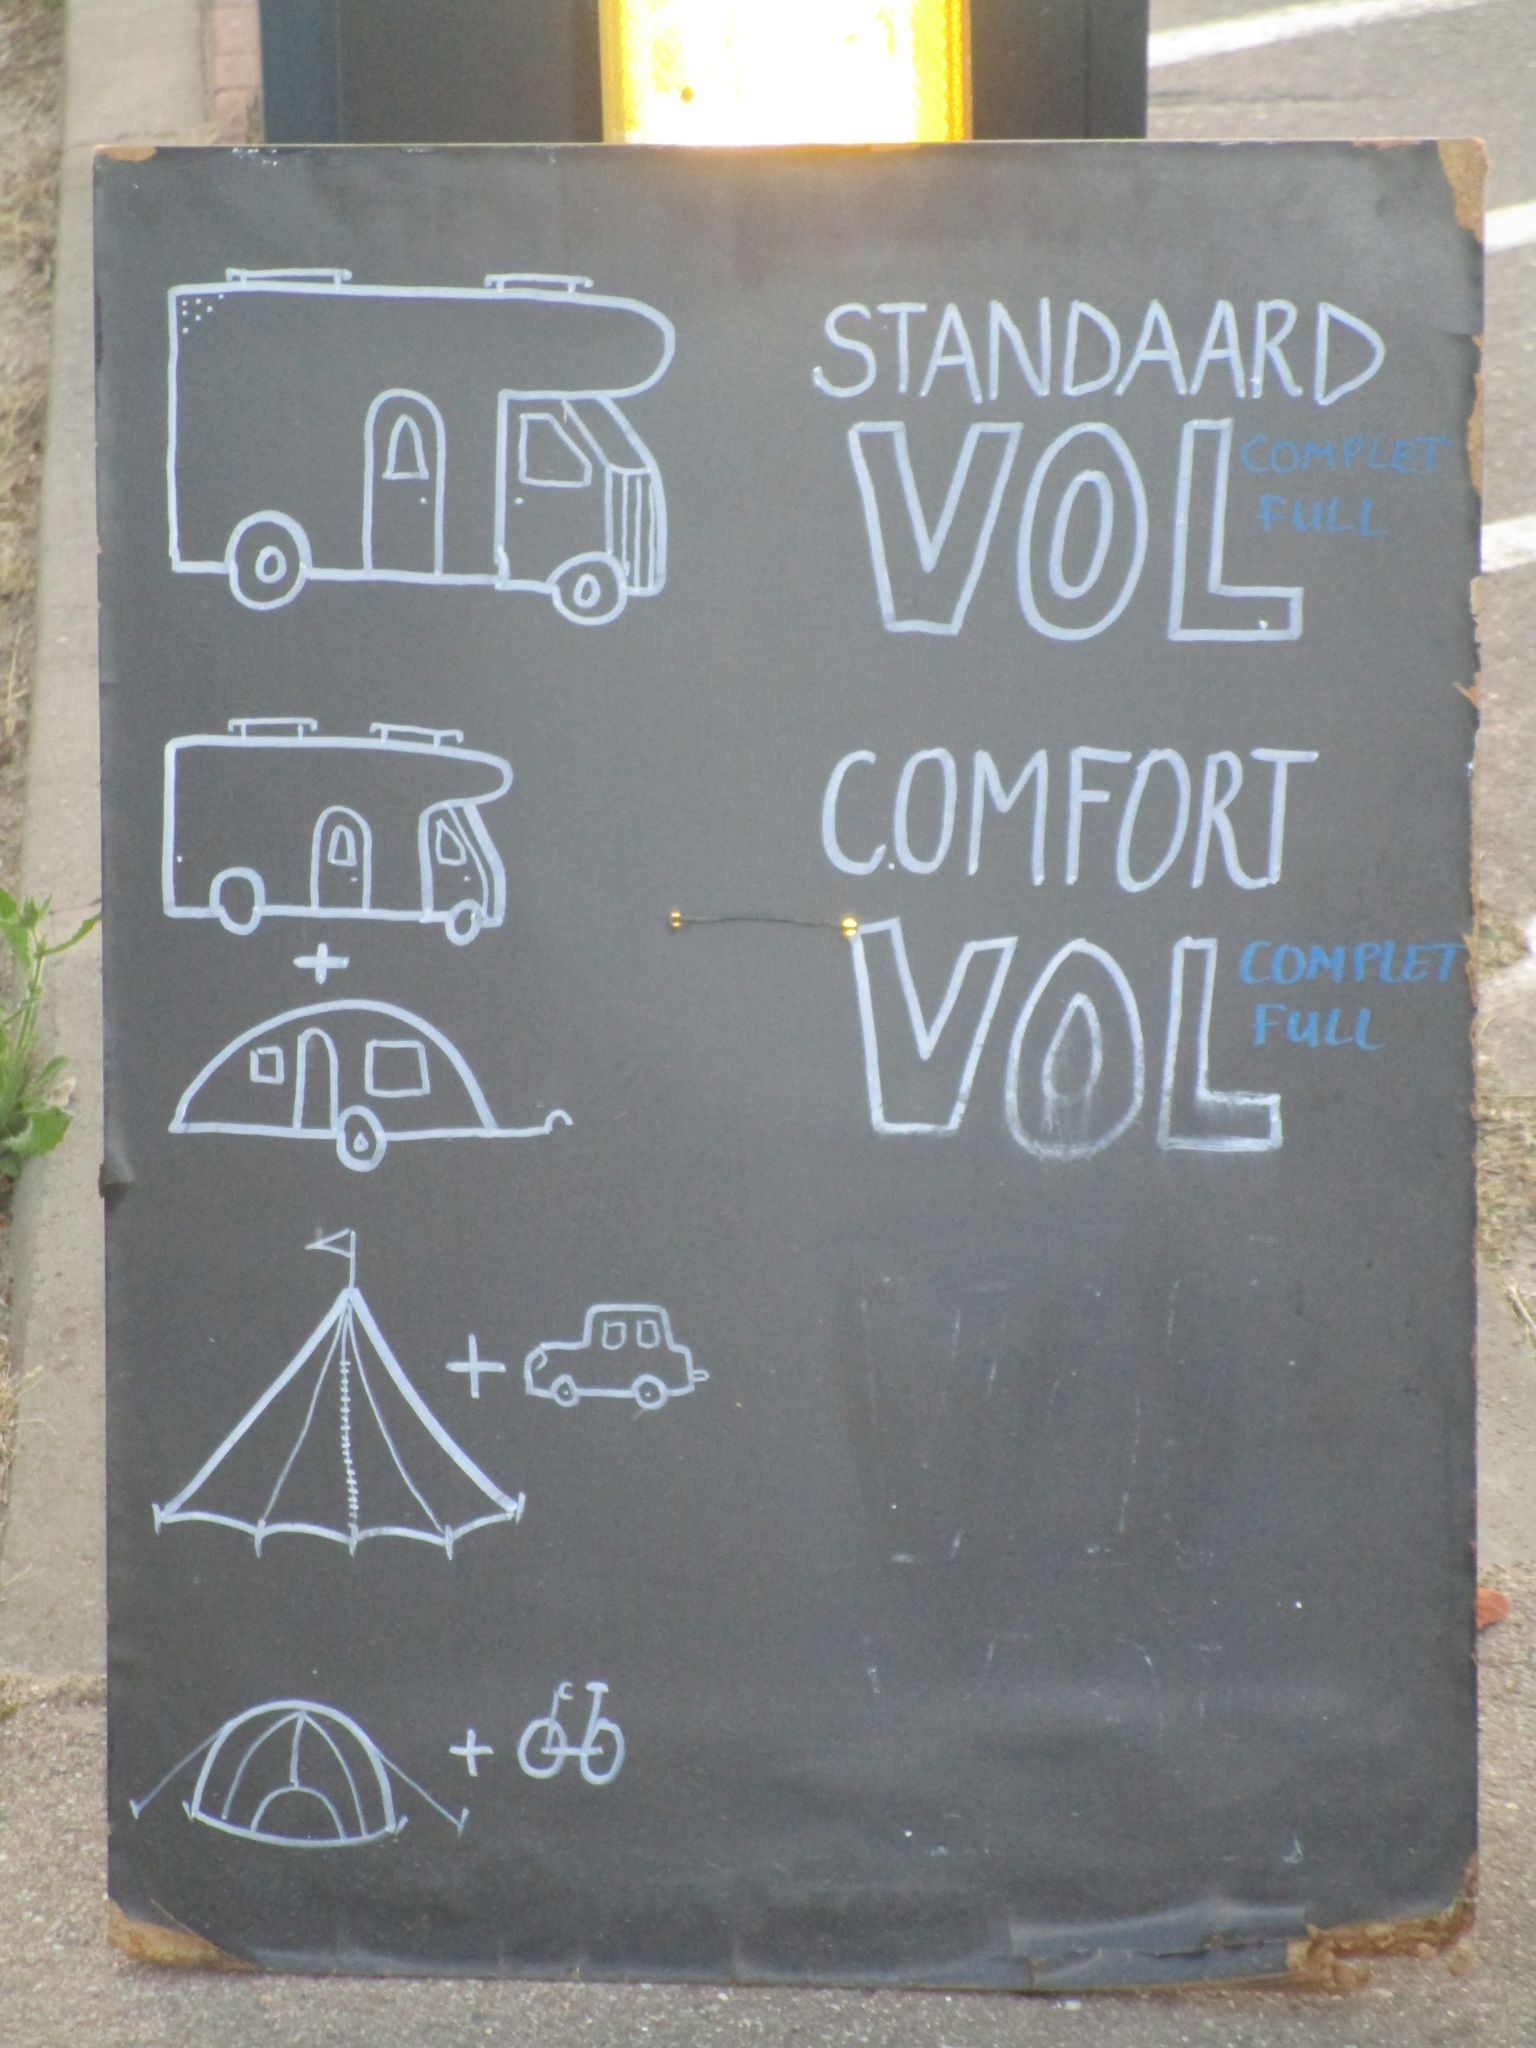 STANDAARD
VOL
COMPLET
FULL
COMFORT
VOL
COMPLET
FULL